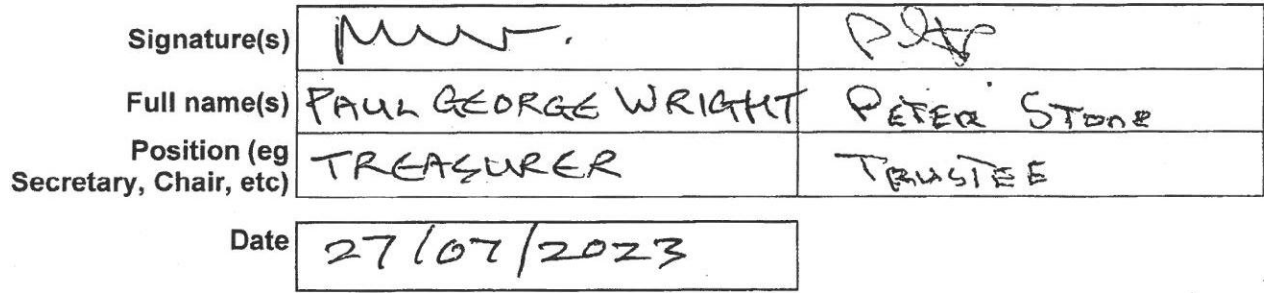 Signature(s)
Full name(s) PAUL GEORGE WRIGHT PETER STONE
Position (eg
Secretary, Chair, etc) TREASURER TRUSTEE
Date 27/07/2023